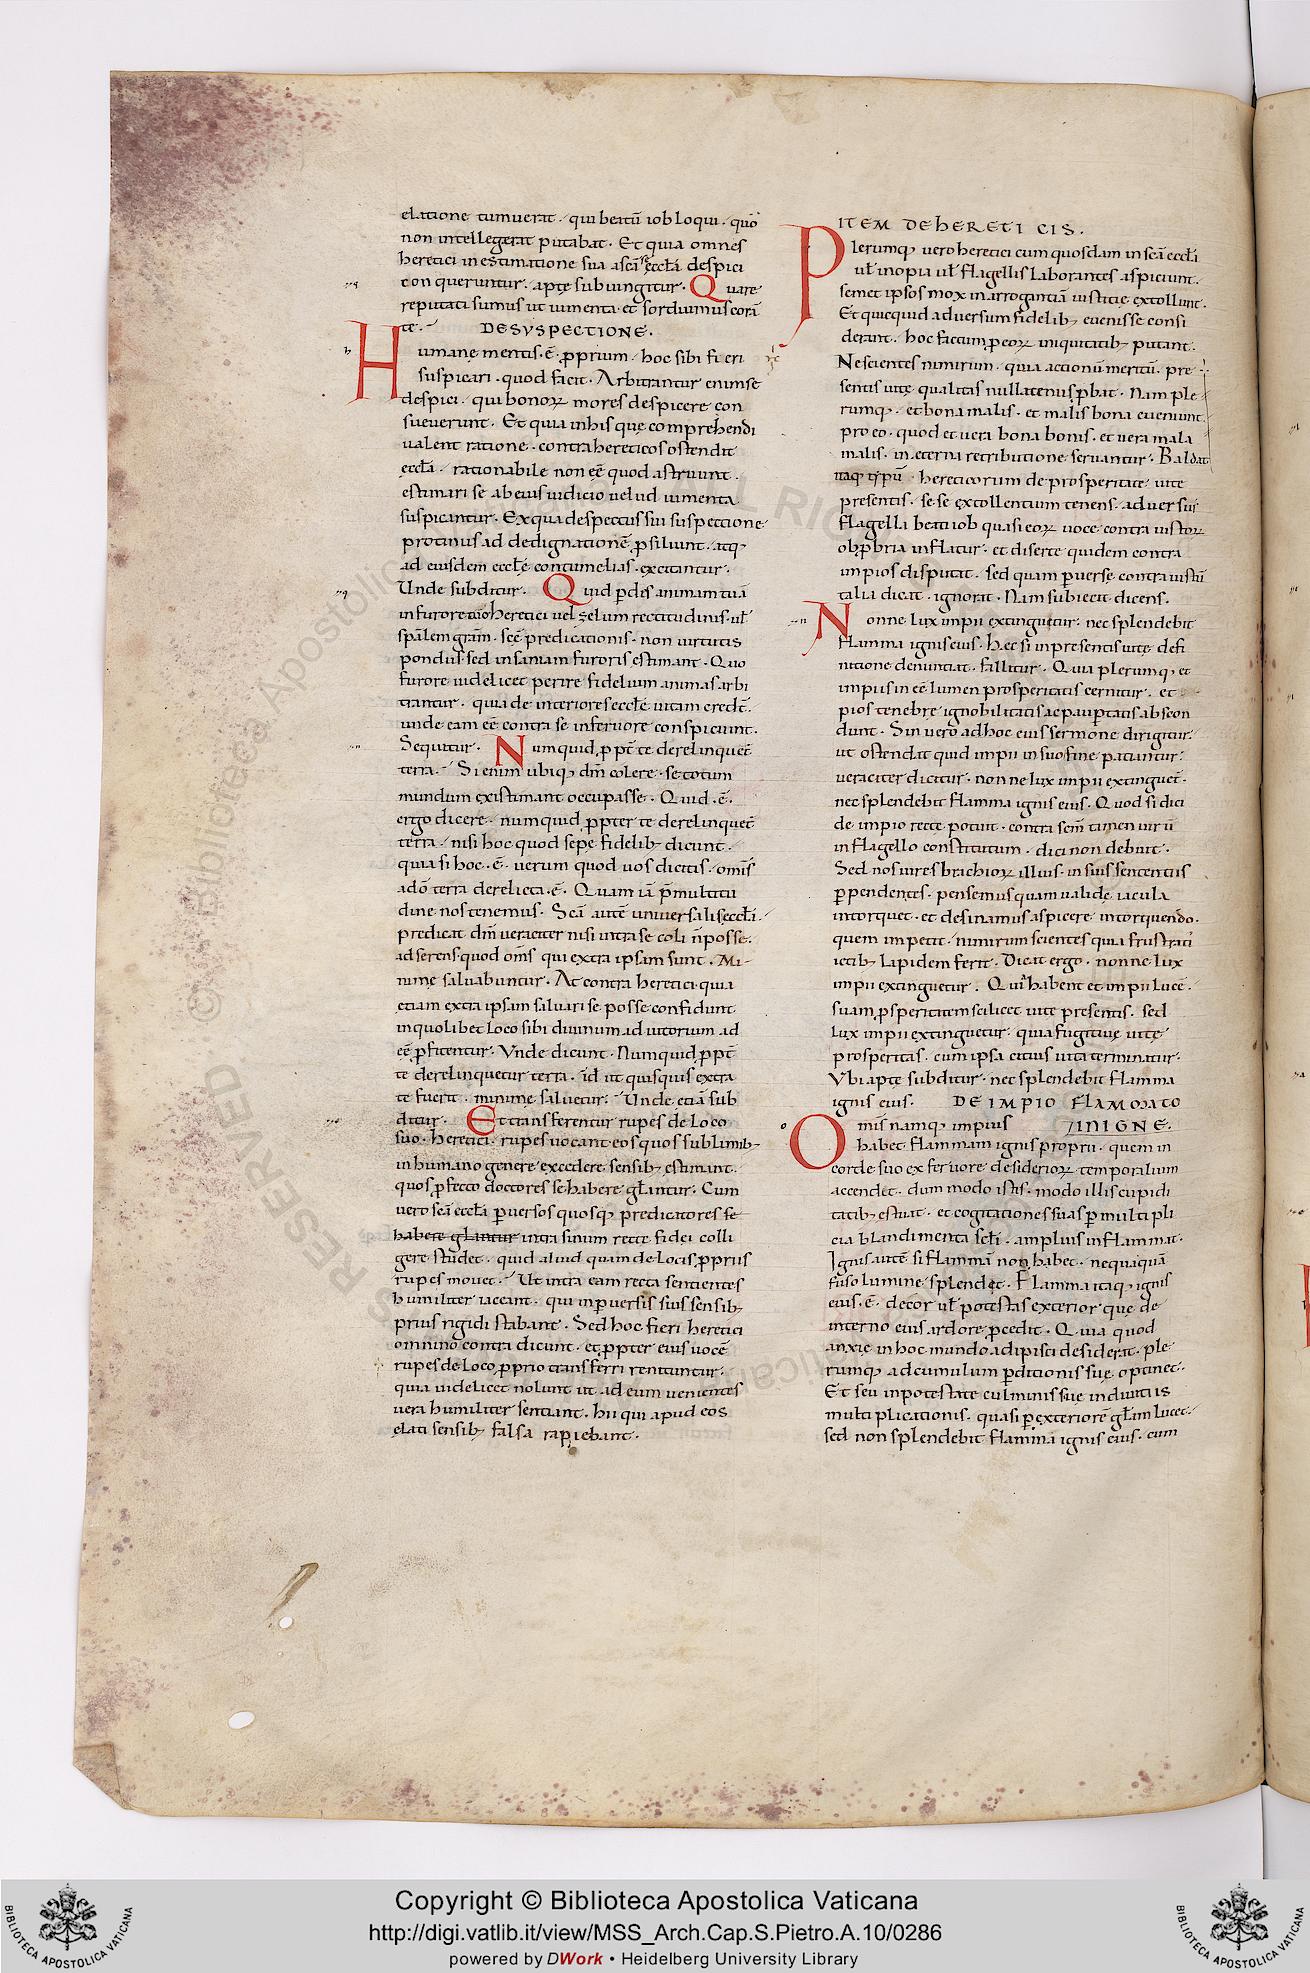 elatione tumuerat · qui beatũ iob loqui · quõ
non intellegerat putabat · Et quia omnes
heretici in estimatione sua a scã eccłia despici
conqueruntur · apte subiungitur · Quare
reputati sumus ut iumenta et sorduimus corã
te · DE SVSPECTIONE ·
Humanę mentis · ē · pprium · hoc sibi fieri
suspicari · quod facit · Arbitrantur enim se
despici · qui bonoꝝ mores despicere con
sueuerunt · Et quia in his quę comprehendi
ualent ratione · contra hereticos ostendit
eccłia · rationabile non eē quod astruunt ·
estimari se ab eius iudicio uelud iumenta
suspicantur · Ex qua despectus sui suspectione
protinus ad dedignationē psiliunt · atq;
ad eiusdem eccłę contumelias · excitantur ·
Unde subditur · Quid pdis animam tuã
in furore tuo heretici uel zelum rectitudinis · uł
spãlem grãm · scę predicationis · non uirtutis
pondus sed insaniam furoris estimant · Quo
furore uidelicet perire fidelium animas arbi
trantur · quia de interiore eccłę uitam credē ·
unde eam eē contra se in feruore conspiciunt ·
Sequitur · Numquid ppt te derelinquet
terra · Si enim ubiq; dm̃ colere · se totum
mundum existimant occupasse · Quid · ē ·
ergo dicere · numquid ppter te derelinquet
terra · nisi hoc quod sepe fidelib; dicunt ·
quia si hoc · ē · uerum quod uos dicitis · omis
a dõ terra derelicta · ē · Quam iã p multitu
dine nos tenemus · Scã autē uniuersalis eccłia ·
predicat dm̃ ueraciter nisi intra se coli ñ posse ·
adserens · quod oms̃ qui extra ipsam sunt · Mi
nime saluabuntur · At contra heretici · quia
etiam extra ipsam saluari se posse confidunt
in quolibet loco sibi diuinum adiutorium ad
eē pfitentur · Vnde dicunt · Numquid ppt
te derelinquetur terra · id ut quisquis extra
te fuerit · minime saluetur · Unde etiã sub
ditur · Et transferentur rupes de loco
suo · heretici · rupes uocant eos quos sublimib;
in humano genere excedere sensib; estimant ·
quos pfecto doctores se habere głiantur · Cum
uero scã eccłia puersos quosq; predicatores se
habere głiantur intra sinum recte fidei colli
gere studet · quid aliud quam de locis ppriis
rupes mouet · Ut intra eam recta sentientes
humiliter iaceant · qui in puersis suis sensib;
prius rigidi stabant · Sed hoc fieri heretici
omnino contradicunt · et ppter eius uocē
rupes de loco pprio transferri renituntur ·
quia uidelicet nolunt ut ad eum uenientes
uera humiliter sentiant · hii qui apud eos
elati sensib; falsa rapiebant ·
ITEM DE HERETICIS ·
Plerumq; uero heretici cum quosdam in scã eccłia
uł inopia uł flagellis laborantes aspiciunt ·
semet ipsos mox in arrogantiã iustitie extollunt ·
Et quicquid aduersum fidelib; euenisse consi
derant · hoc factum p eoꝝ iniquitatib; putant ·
Nescientes nimirum · quia actionũ meritũ · pre
sentis uitę qualitas nullatenus pbat · Nam ple
rumq; · et bona malis · et malis bona eueniunt
pro eo · quod et uera bona bonis · et uera mala
malis · in eterna retributione seruantur · Baldat
itaq; typũ · hereticorum de prosperitate uite
presentis · sese extollentium tenens · aduersus
flagella beati iob quasi eoꝝ uoce contra iustoꝝ
obpbria inflatur · et diserte quidem contra
impios disputat · sed quam puerse contra iustũ
talia dicat · ignorat · Nam subiecit dicens ·
Nonne lux impii extinguetur · nec splendebit
flamma ignis eius · Hec si in presentis uitę defi
nitione denuntiat · fallitur · Quia plerumq; et
impiis inee lumen prosperitatis cernitur · et
pios tenebre ignobilitatis ac paup̱tatis abscon
dunt · Sin uero ad hoc eius sermone dirigitur
ut ostendat quid impii in suo fine patiantur ·
ueraciter dicitur · nonne lux impii extinguet ·
nec splendebit flamma ignis eius · Quod si dici
de impio recte potuit · contra scm̃ tamen uirũ
in flagello constitutum · dici non debuit ·
Sed nos uires brachioꝝ illius · in suis sententiis
ppendentes · pensemus quam ualide iacula
intorquet · et desinamus aspicere intorquendo ·
quem impetit · nimirum scientes quia frustrati
ictib; lapidem ferit · Dicat ergo · nonne lux
impii extinguetur · Qui habent et impii lucē ·
suam psperitatem scilicet uite presentis · sed
lux impii extinguetur · quia fugitiuę uitę
prosperitas · cum ipsa citius uita terminatur ·
Vbi apte subditur · nec splendebit flamma
ignis eius · DE IMPIO FLAMMATO
Omis̃ namq; impius IN IGNE ·
habet flammam ignis proprii · quem in
corde suo ex feruore desiderioꝝ temporalium
accendet · dum modo istis · modo illis cupidi
tatib; estuat · et cogitationes suas p multipli
cia blandimenta scłi · amplius inflammat ·
Ignis autē si flammã non habet · nequaquã
fuso lumine splendet · Flamma itaq; ignis
eius · ē · decor uł potestas exterior quę de
interno eius ardore pcedit · Quia quod
anxie in hoc mundo adipisci desiderat · ple
rumq; ad cumulum pditionis suę optinet ·
Et seu in potestate culminis siue in diuitiis
multiplicationis · quasi p exteriorē głiam lucet ·
sed non splendebit flamma ignis eius · cum
Copyright © Biblioteca Apostolica Vaticana
http://digi.vatlib.it/view/MSS_Arch.Cap.S.Pietro.A.10/0286
powered by DWork • Heidelberg University Library
BIBLIOTECA APOSTOLICA VATICANA
BIBLIOTECA APOSTOLICA VATICANA